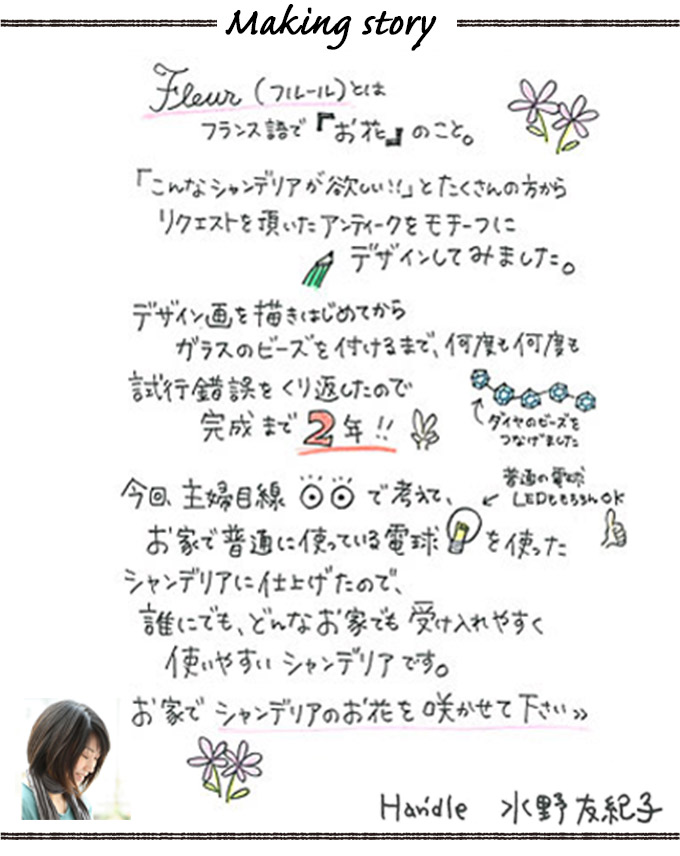 Making story
Fleur (フルール)とは
フランス語で『お花』のこと。
「こんなシャンデリアが欲しい!!」とたくさんの方から
リクエストを頂いたアンティークをモチーフに
デザインしてみました。
デザイン画を描きはじめてから
ガラスのビーズを付けるまで、何度も何度も
試行錯誤をくり返したので
完成まで2年!!
ダイヤのビーズを
つなげました
今回、主婦目線で考えて、
普通の電球
LEDももちろんOK
お家で普通に使っている電球を使った
シャンデリアに仕上げたので、
誰にでも、どんなお家でも受け入れやすく
使いやすいシャンデリアです。
お家でシャンデリアのお花を咲かせて下さい»
Handle 水野友紀子